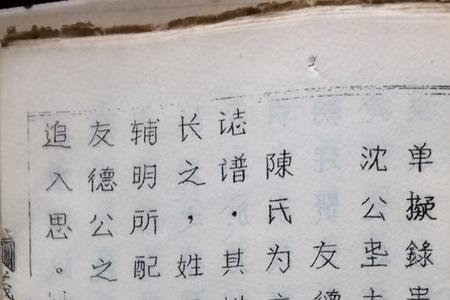 单擬錄
沈公
友德
陳氏为
誌谱.其
长之,姓
辅明所配
友德公之
追入思。